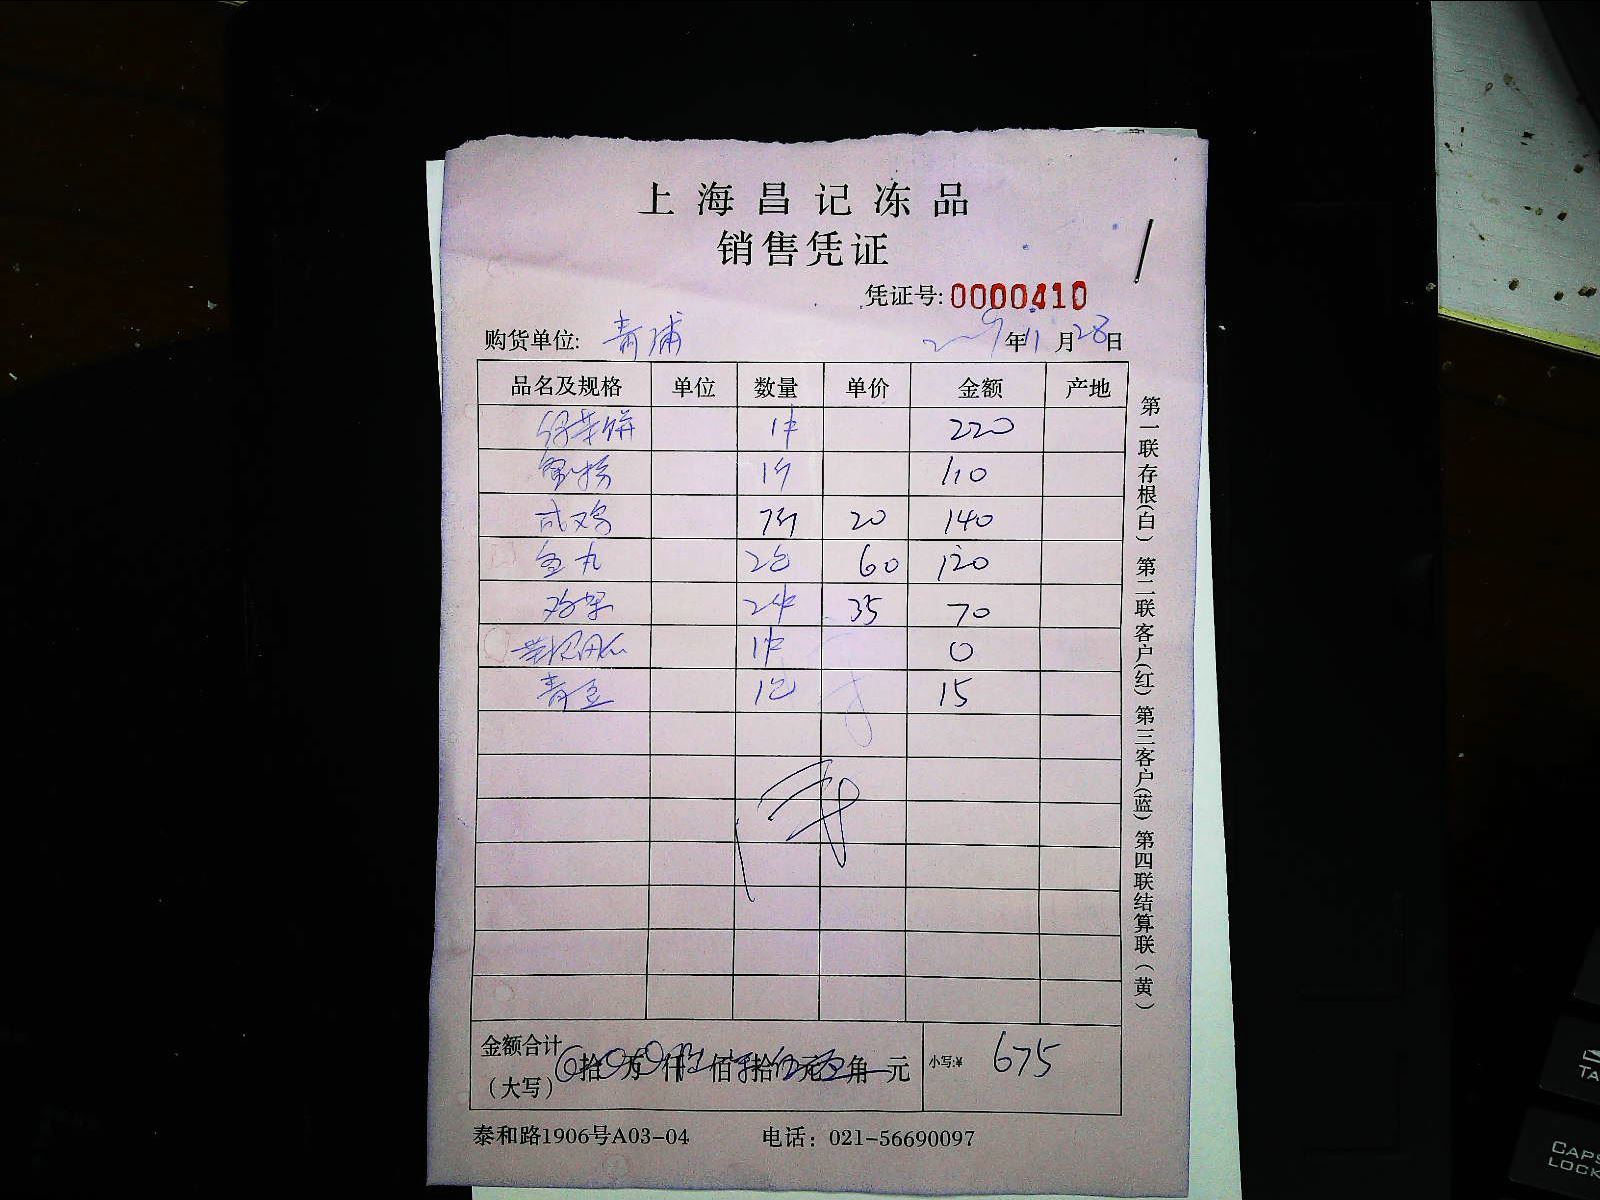 上海昌记冻品
销售凭证
凭证号: 0000410
购货单位: 青浦 2009年11月28日
品名及规格 单位 数量 单价 金额 产地
1件 220
1件 110
成鸡 7只 20 140
鱼丸 2包 60 120
鸡架 2件 35 70
1件 0
青豆 1包 15
金额合计
（大写） 拾 万 仟 佰 拾 元 角 元 小写:¥ 675
泰和路1906号A03-04 电话：021-56690097
第一联存根(白) 第二联客户(红) 第三客户(蓝) 第四联结算联（黄）
TA
CAPS
LOCK